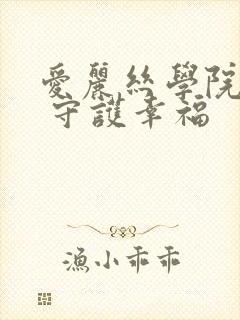 愛麗絲學院
守護幸福
漁小乖乖